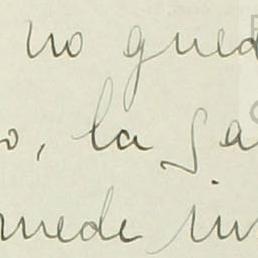 no qued
o, la Ga
uede in